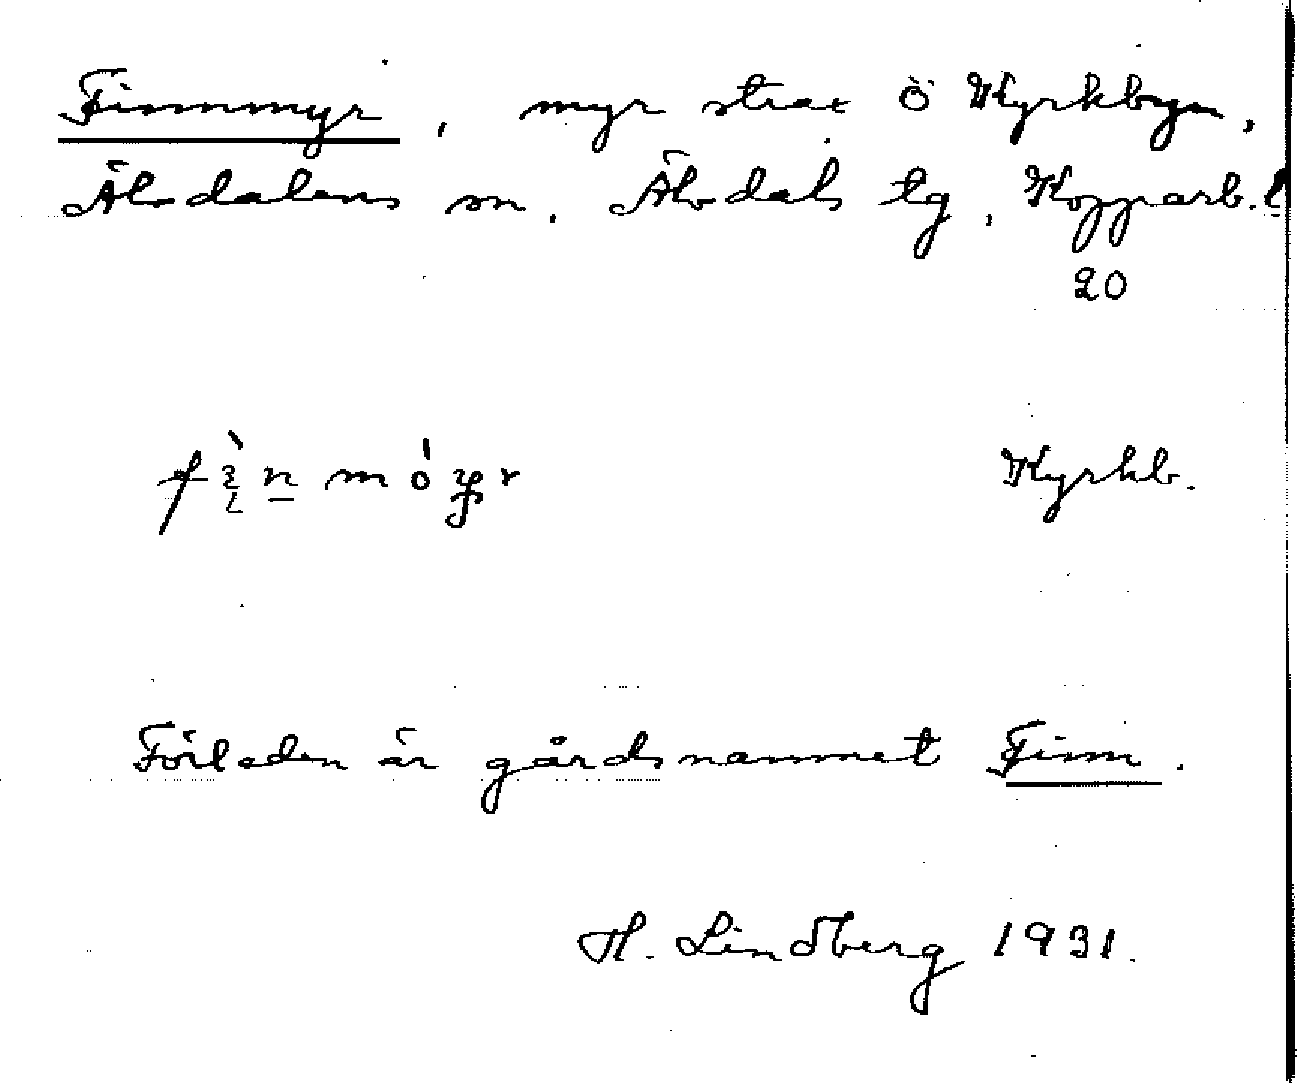 Finnmyr, myr strax Ö Kyrkbyn,
Älvdalens sn. Älvdals tg, Kopparb. l
20
Kyrkb.
Förleden är gårdsnamnet Finn.
H. Lindberg 1931.